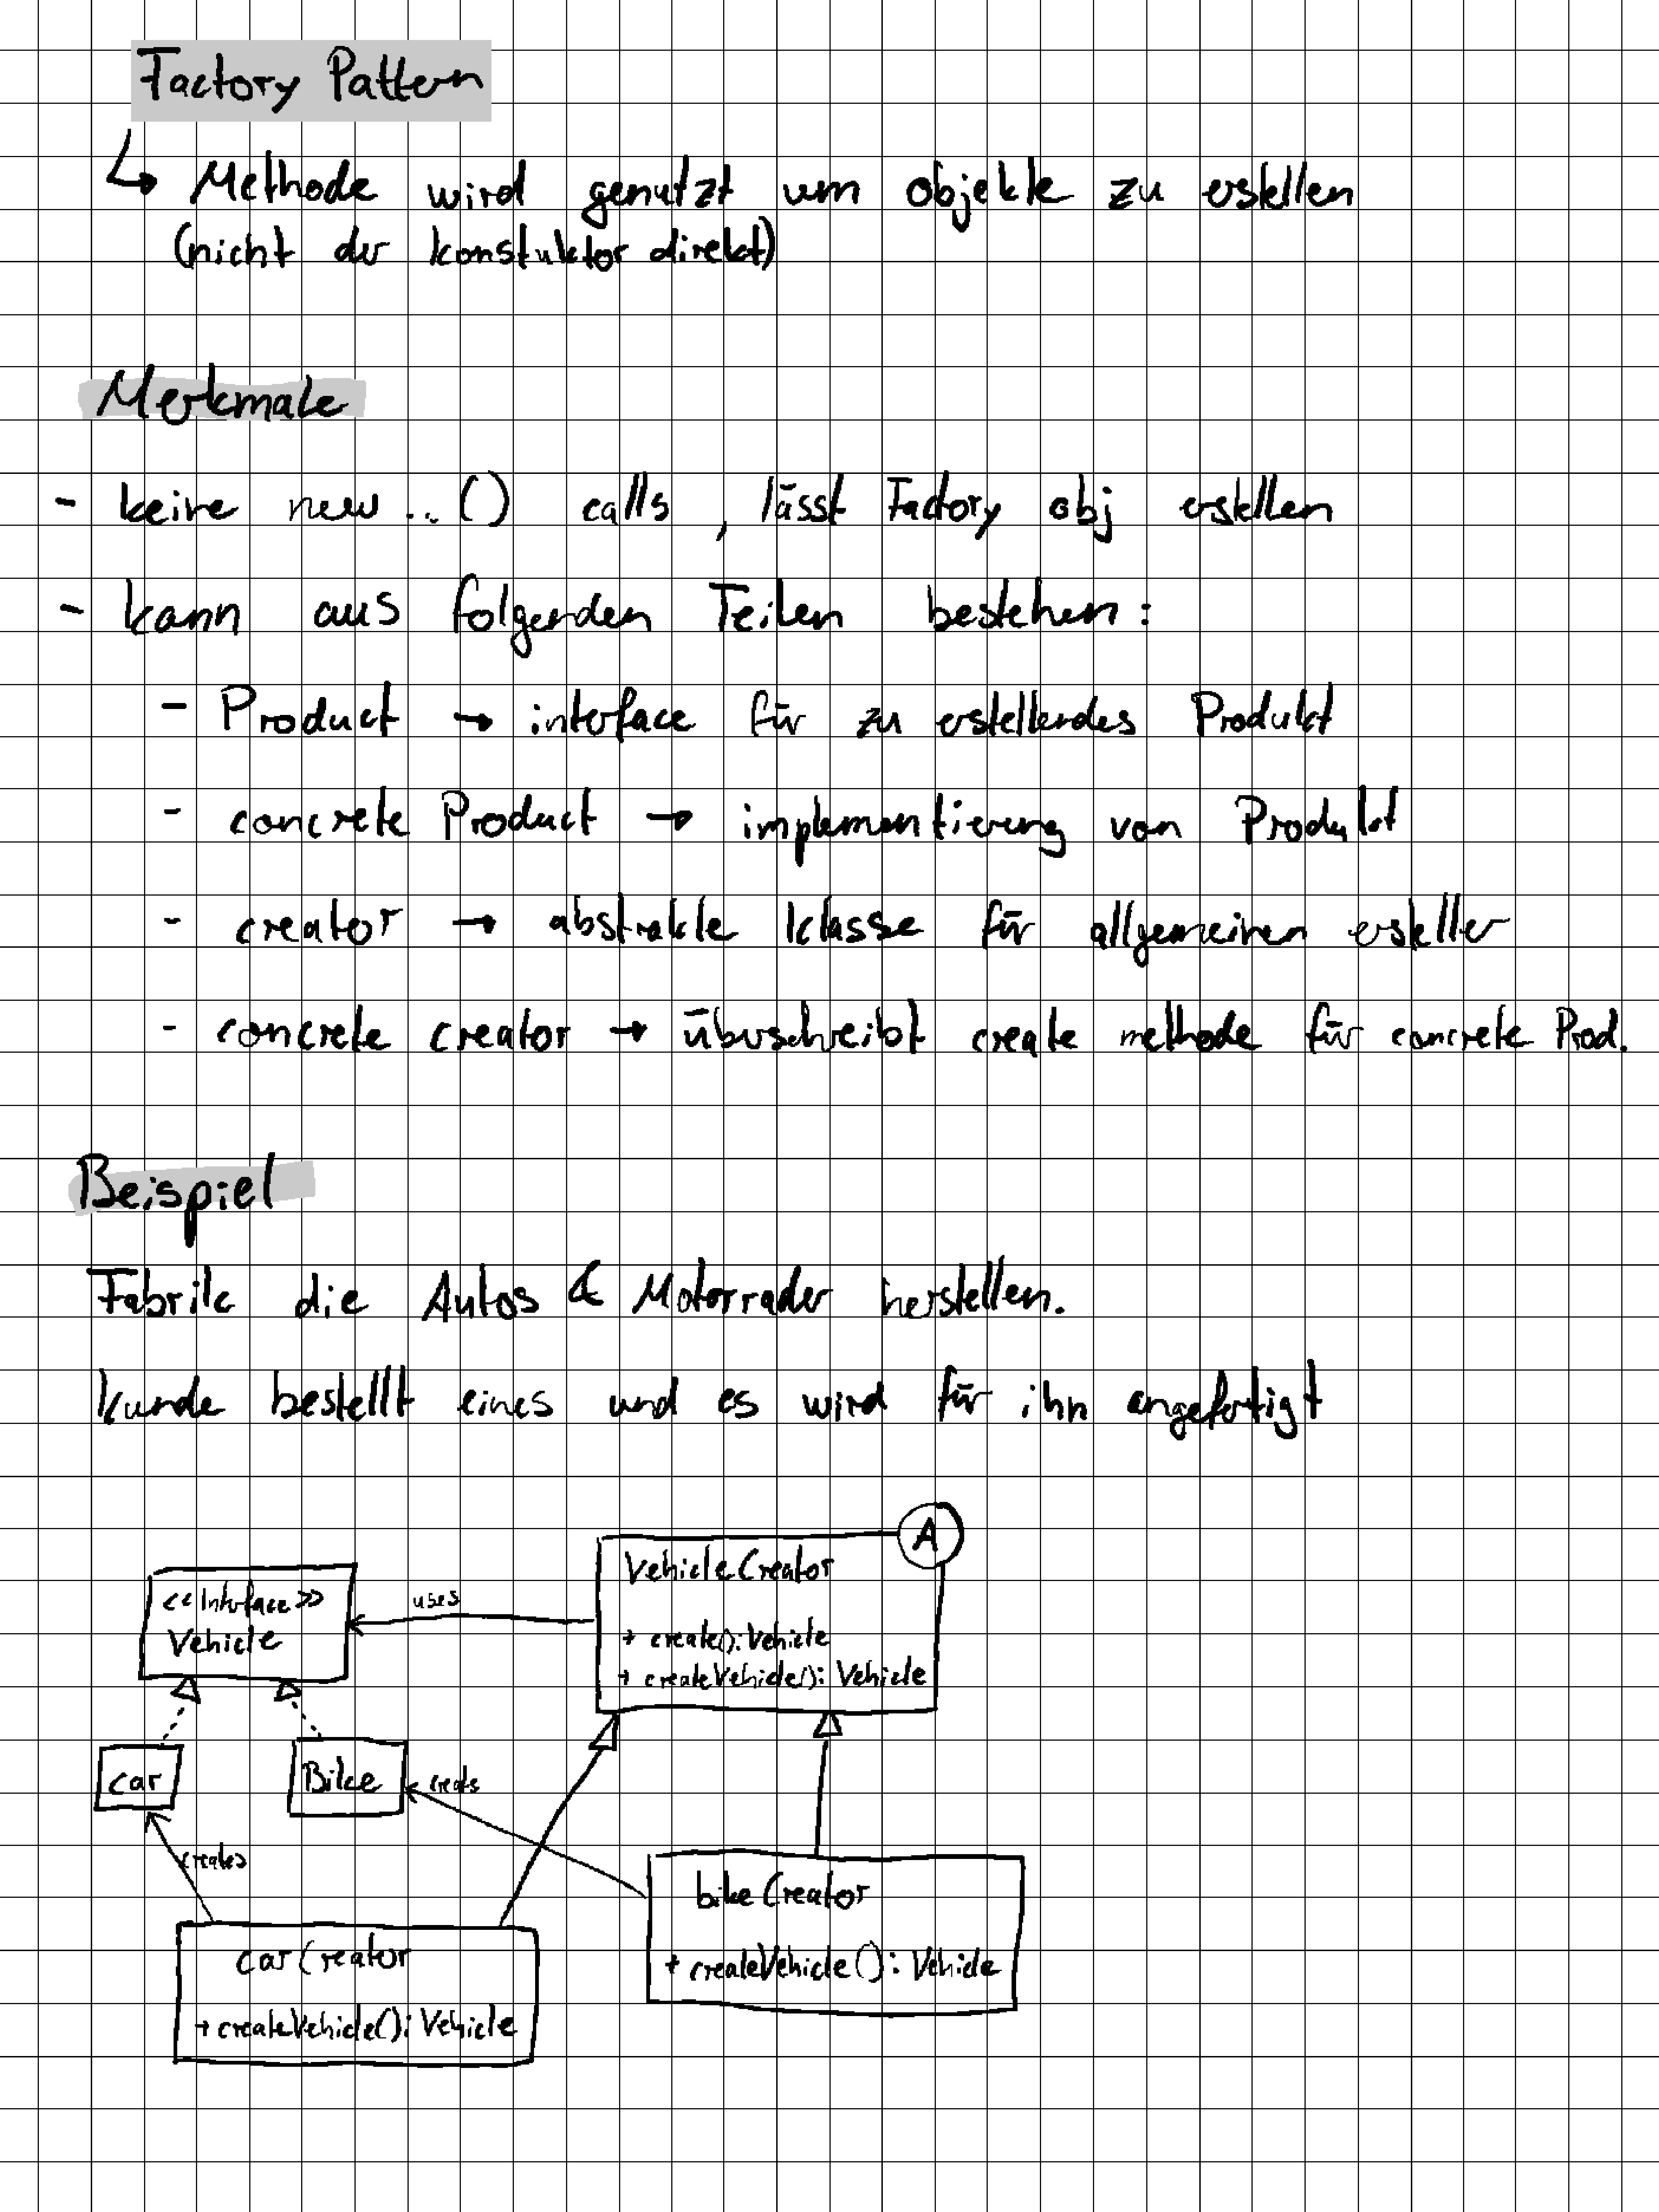 Factory Pattern
↳ Methode wird genutzt um objekte zu erstellen
(nicht der Konstuktor direkt)
Merkmale
- keine new..() calls, lässt Factory obj erstellen
- kann aus folgenden Teilen bestehen:
- Product → interface für zu erstellendes Produkt
- concrete Product → implementierung von Produkt
- creator → abstrakte klasse für allgemeinen ersteller
- concrete creator → überschreibt create methode für concrete Prod.
Beispiel
Fabrik die Autos & Motorrader herstellen.
Kunde bestellt eines und es wird für ihn angefertigt
A
VehicleCreator
+ create(): Vehicle
+ createVehicle(): Vehicle
<<Interface>>
Vehicle
uses
car
Bike
creats
creates
bikeCreator
+ createVehicle(): Vehicle
carCreator
+ createVehicle(): Vehicle